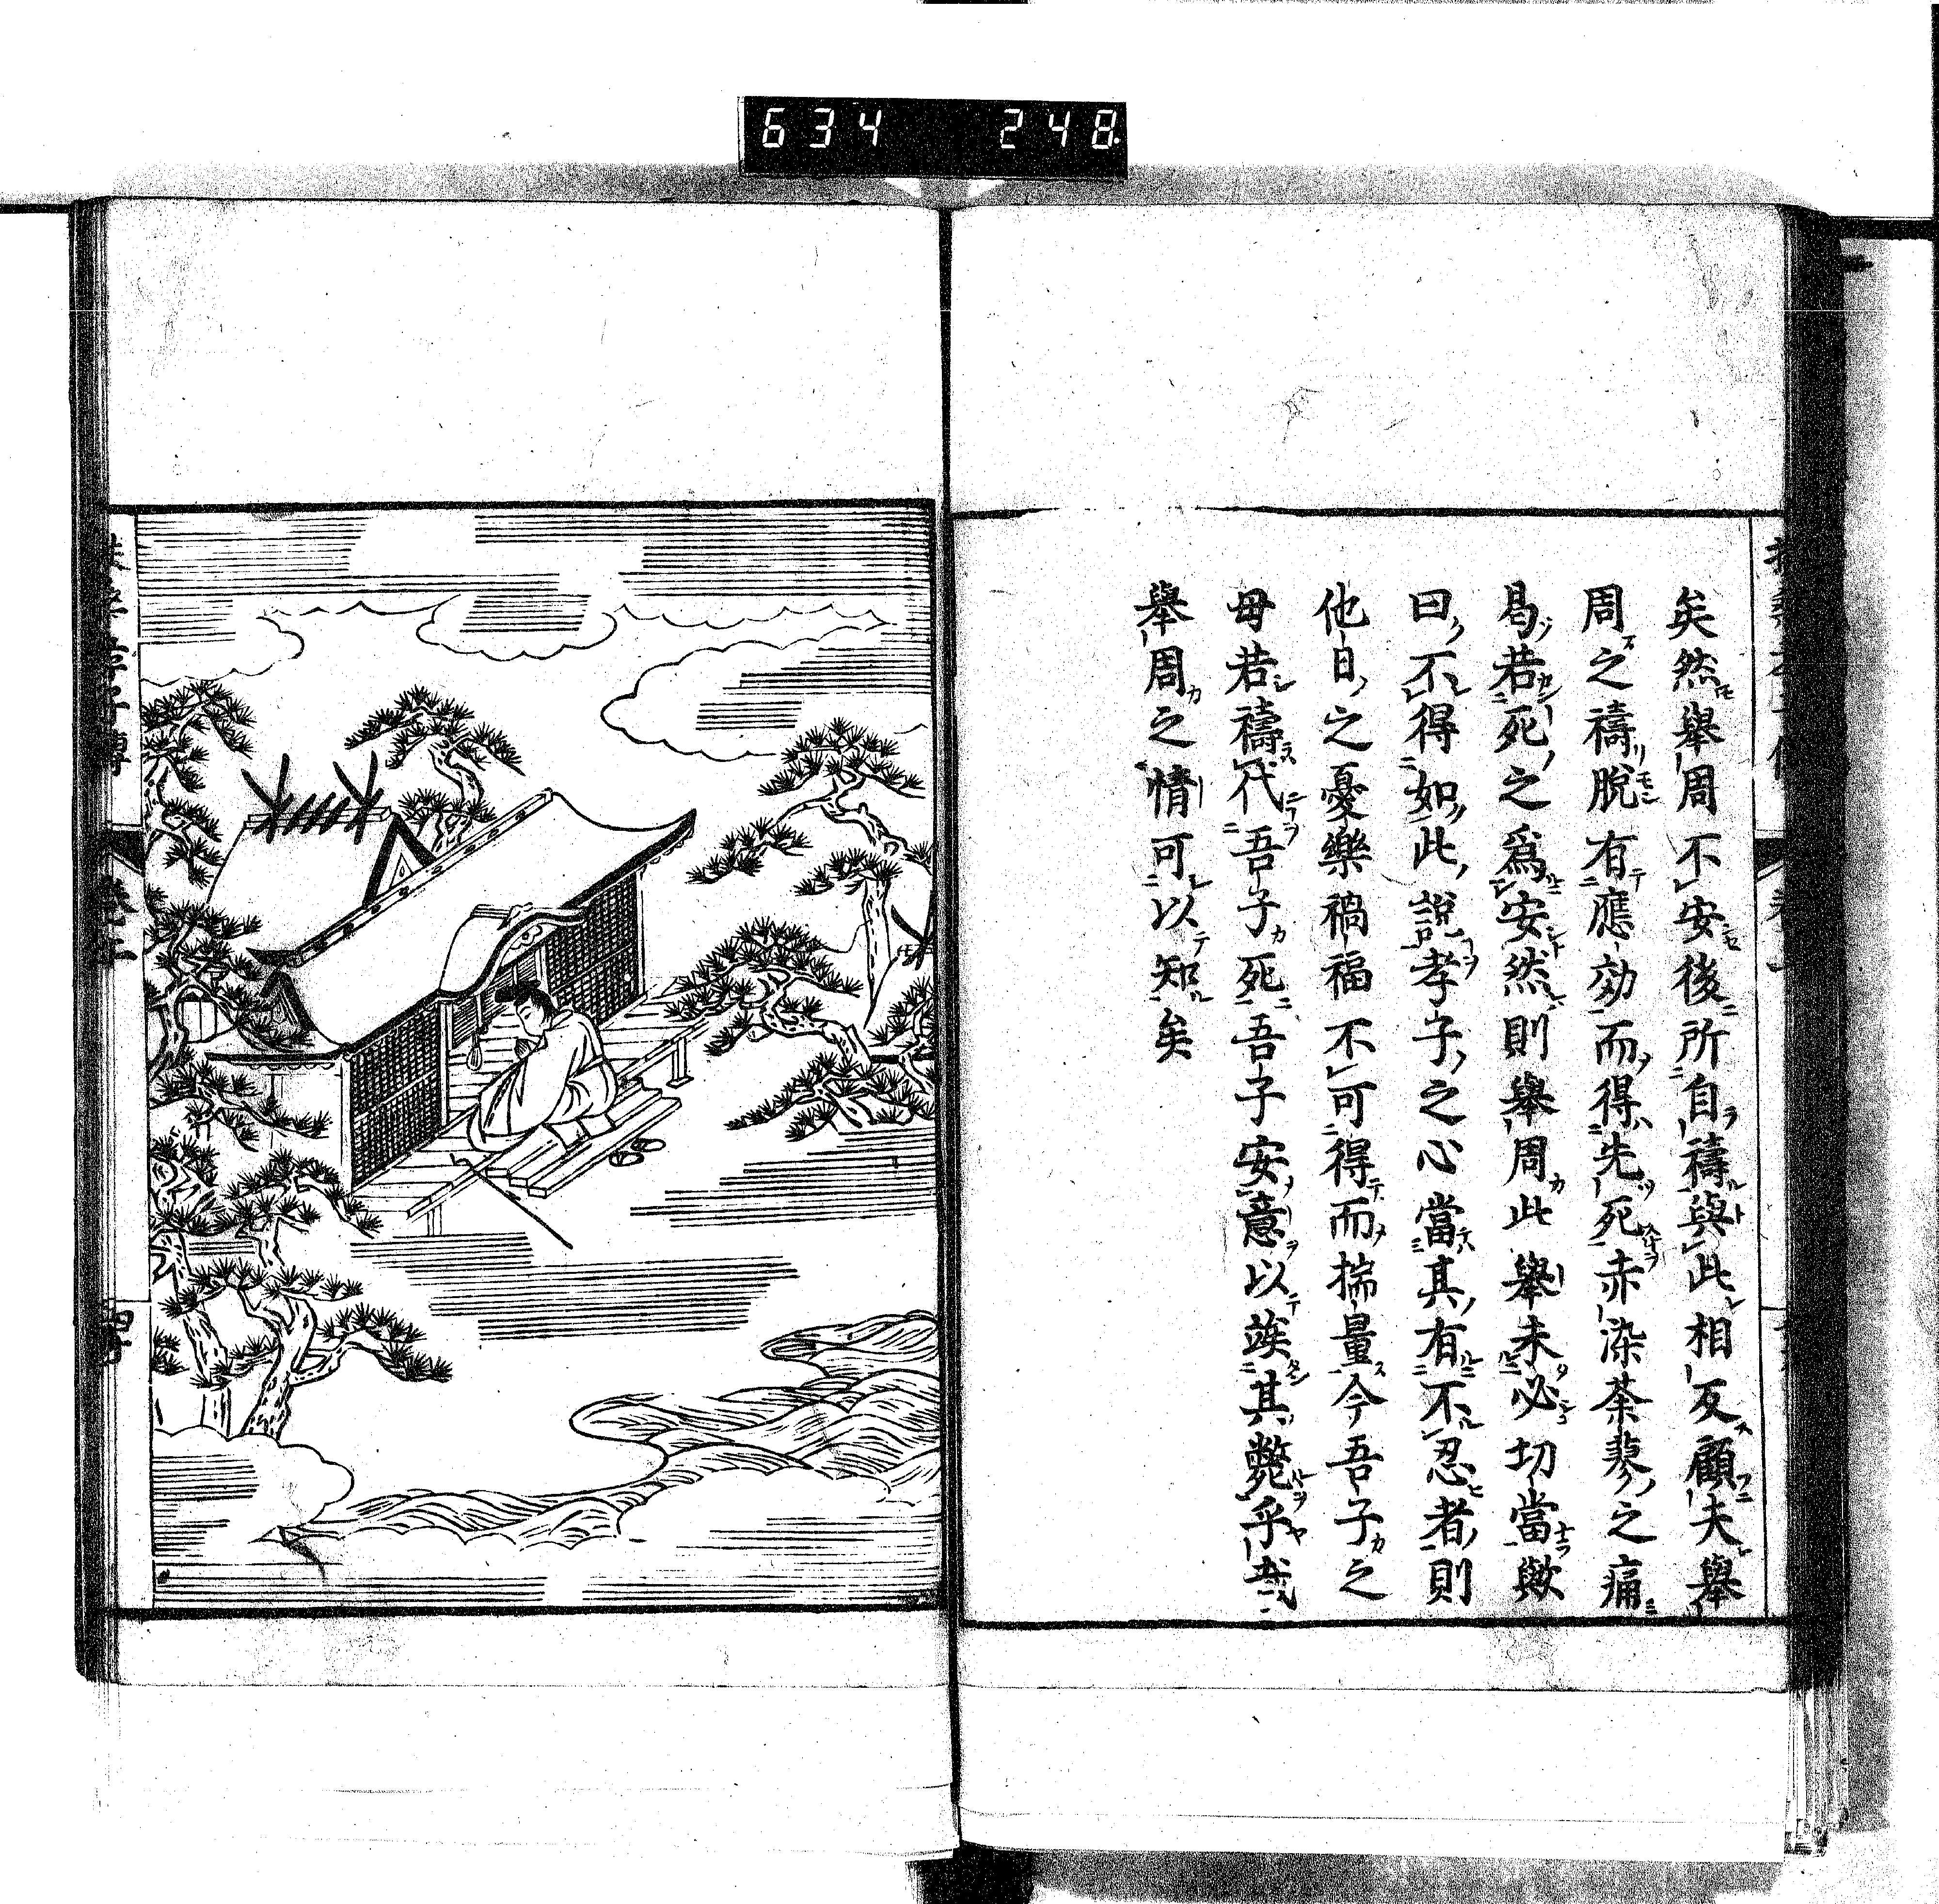 634 248
矣然舉周不安後所自禱與此相反顧夫舉
周之禱脫有應効而得先死赤染荼蓼之痛
曷若死之爲安然則舉周此舉未必切當歟
曰不得如此說孝子之心當其有不忍者則
他日之憂樂禍福不可得而揣量今吾子之
母若禱代吾子死吾子安意以竢其斃乎哉
舉周之情可以知矣